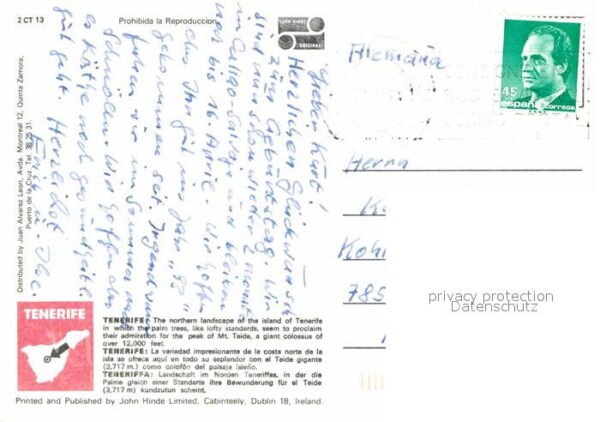 2 CT 13
Prohibida la Reproduccion
JOHN HINDE
ORIGINAL
Alemana
45
españa correos
Lieber Kurt!
Herzlichen Glückwunsch
zum Geburtstag. Wir
sind nun schon wieder 2 Monate
in Callao-Salvaje und bleiben
noch bis 16. April. Wir hoffen
das Ihr gut ins Jahr "93"
gekommen seit. Irgendwann
fahren wir im Sommer nach
Schmölln. Wir hoffen das
es Käthe noch gesundheitl.
gut geht. Herzlichst
Distributed by Juan Alvarez Leon, Avda. Montreal 12, Quinta Zamora,
Puerto de la Cruz, Tel. 38 25 31.
Herrn
785
privacy protection
Datenschutz
TENERIFE
TENERIFE: The northern landscape of the island of Tenerife
in which the palm trees, like lofty standards, seem to proclaim
their admiration for the peak of Mt. Teide, a giant colossus of
over 12,000 feet.
TENERIFE: La variedad impresionante de la costa norte de la
isla se ofrece aqui en todo su esplendor con el Teide gigante
(3,717 m.) como colofón del paisaje isleño.
TENERIFFA: Landschaft im Norden Teneriffas, in der die
Palme gleich einer Standarte ihre Bewunderung für el Teide
(3,717 m) kundzutun scheint.
Printed and Published by John Hinde Limited, Cabinteely, Dublin 18, Ireland.